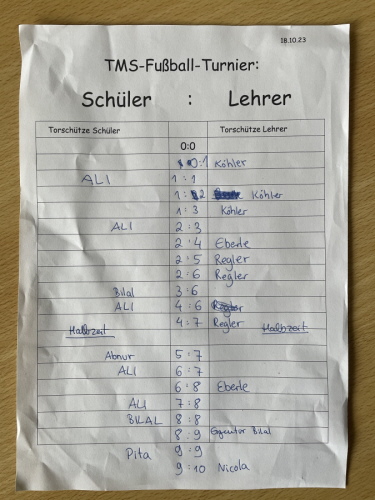 18.10.23
TMS-Fußball-Turnier:
Schüler : Lehrer
Torschütze Schüler Torschütze Lehrer
0:0
0:1 Köhler
ALI 1:1
1:2 Köhler
1:3 Köhler
ALI 2:3
2:4 Eberle
2:5 Regler
2:6 Regler
Bilal 3:6
ALI 4:6 Regler
4:7 Regler
Halbzeit Halbzeit
Abnur 5:7
ALI 6:7
6:8 Eberle
ALI 7:8
BILAL 8:8
8:9 Eigentor Bilal
Pita 9:9
9:10 Nicola